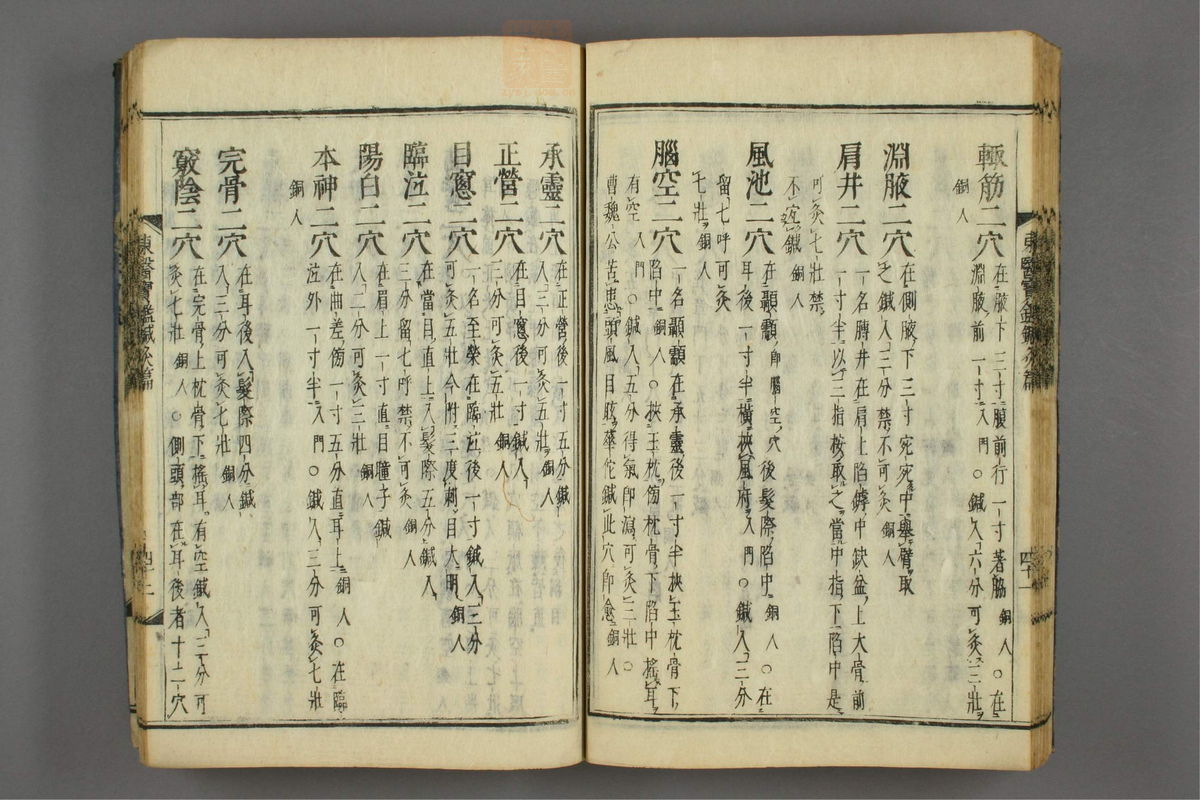 輒筋二穴
在腋下三寸腹前行一寸著脇銅人○在
淵腋前一寸入門○鍼入六分可灸三壯
銅人
淵腋二穴
在側腋下三寸宛宛中擧臂取
之鍼入三分禁不可灸銅人
肩井二穴
一名膊井在肩上陷罅中缺盆上大骨前
一寸半以三指按取之當中指下陷中是
可灸七壯禁
不宜鍼銅人
風池二穴
在顳顬卽腦空穴後髮際陷中銅人○在
耳後一寸半橫挾風府入門○鍼入三分
留七呼可灸
七壯銅人
腦空二穴
一名顳顬在承靈後一寸半挾玉枕骨下
陷中銅人○挾玉枕傍枕骨下陷中搖耳
有空入門○鍼入五分得氣卽瀉可灸三壯○
曹魏公苦患頭風目眩華佗鍼此穴卽愈銅人
東醫寶鑑鍼灸篇
承靈二穴
在正營後一寸五分鍼
入三分可灸五壯銅人
正營二穴
在目窓後一寸鍼入
三分可灸五壯銅人
目窓二穴
一名至榮在臨泣後一寸鍼入三分
可灸五壯今附三度刺目大明銅人
臨泣二穴
在當目直上入髮際五分鍼入
三分留七呼禁不可灸銅人
陽白二穴
在眉上一寸直目瞳子鍼
入二分可灸三壯銅人
本神二穴
在曲差傍一寸五分直耳上銅人○在臨
泣外一寸半入門○鍼入三分可灸七壯
銅人
完骨二穴
在耳後入髮際四分鍼
入三分可灸七壯銅人
竅陰二穴
在完骨上枕骨下搖耳有空鍼入三分可
灸七壯銅人○側頭部在耳後者十二穴
東醫寶鑑鍼灸篇